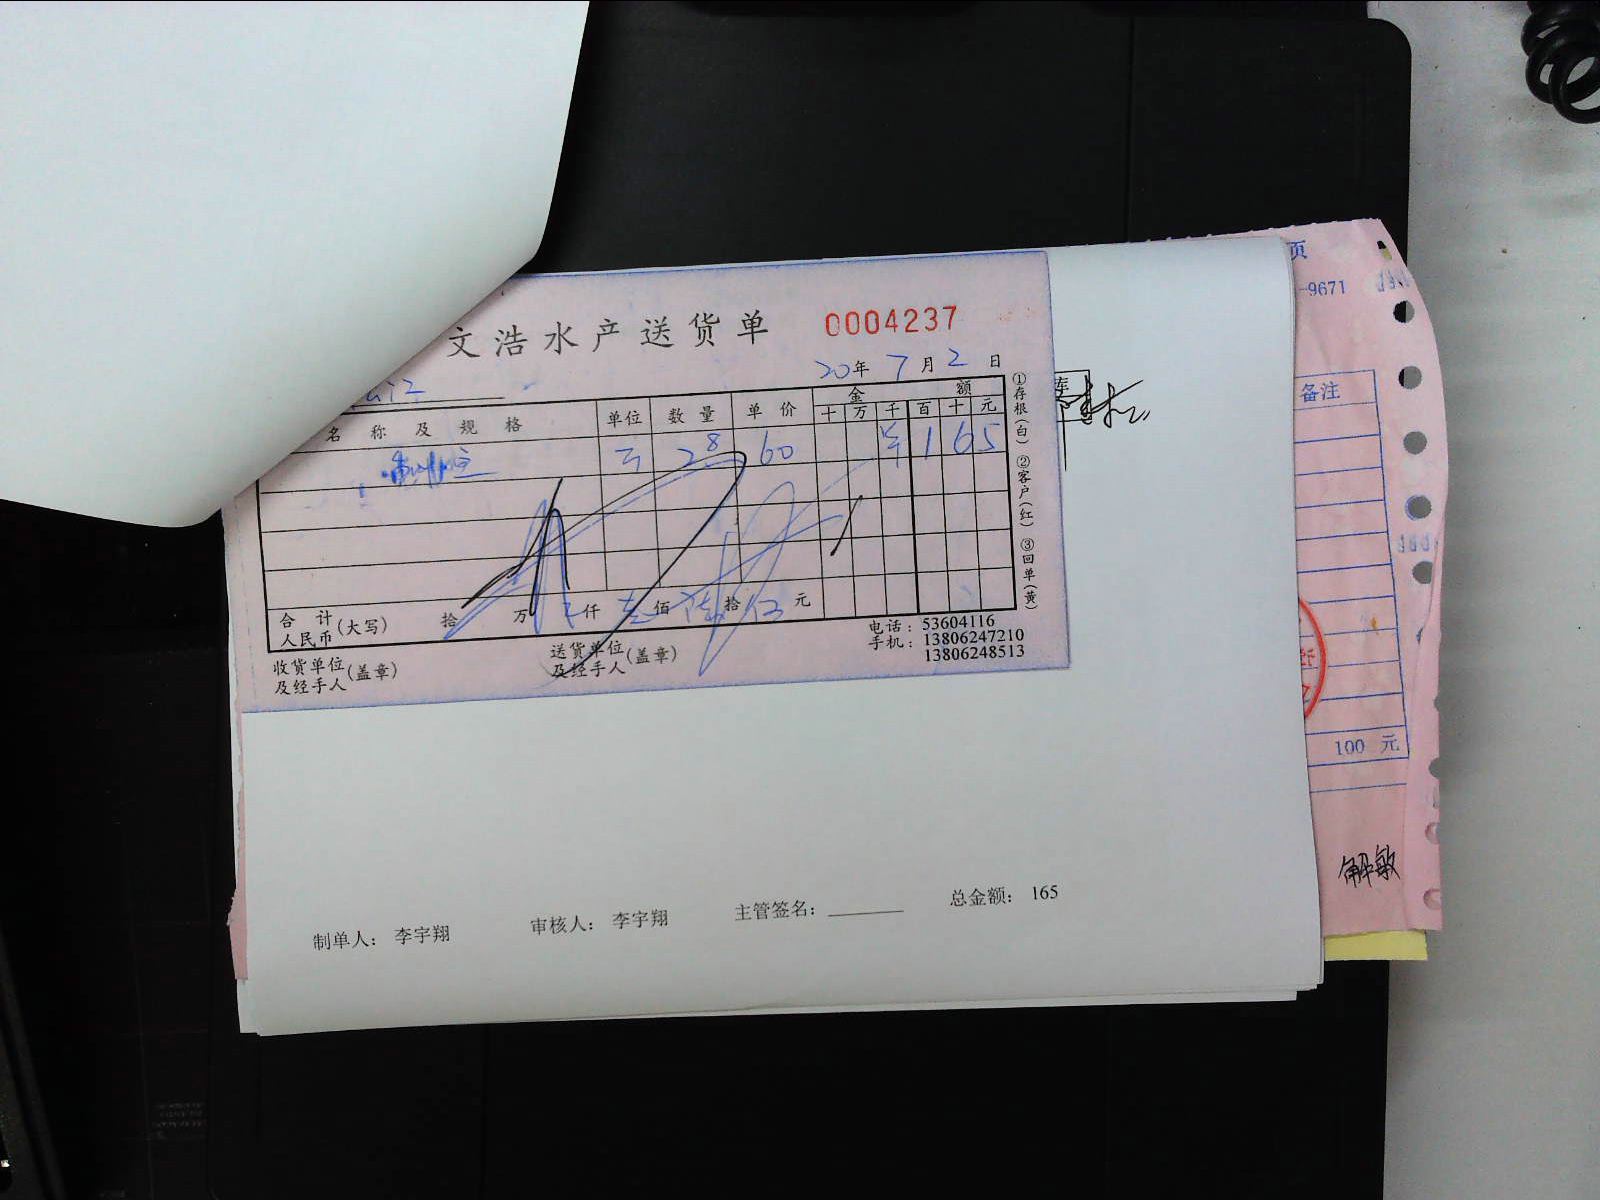 页
-9671
文浩水产送货单 0004237
20年7月2日
名称及规格 单位 数量 单价 金额
十万千百十元
28 60 165
合计
人民币(大写) 拾 万 仟 壹佰 陆拾 伍元
收货单位
及经手人(盖章)
送货单位
及经手人(盖章)
电话: 53604116
手机: 13806247210
13806248513
①存根(白) ②客户(红) ③回单(黄)
库
备注
100 元
解敏
制单人: 李宇翔 审核人: 李宇翔 主管签名: ________ 总金额: 165